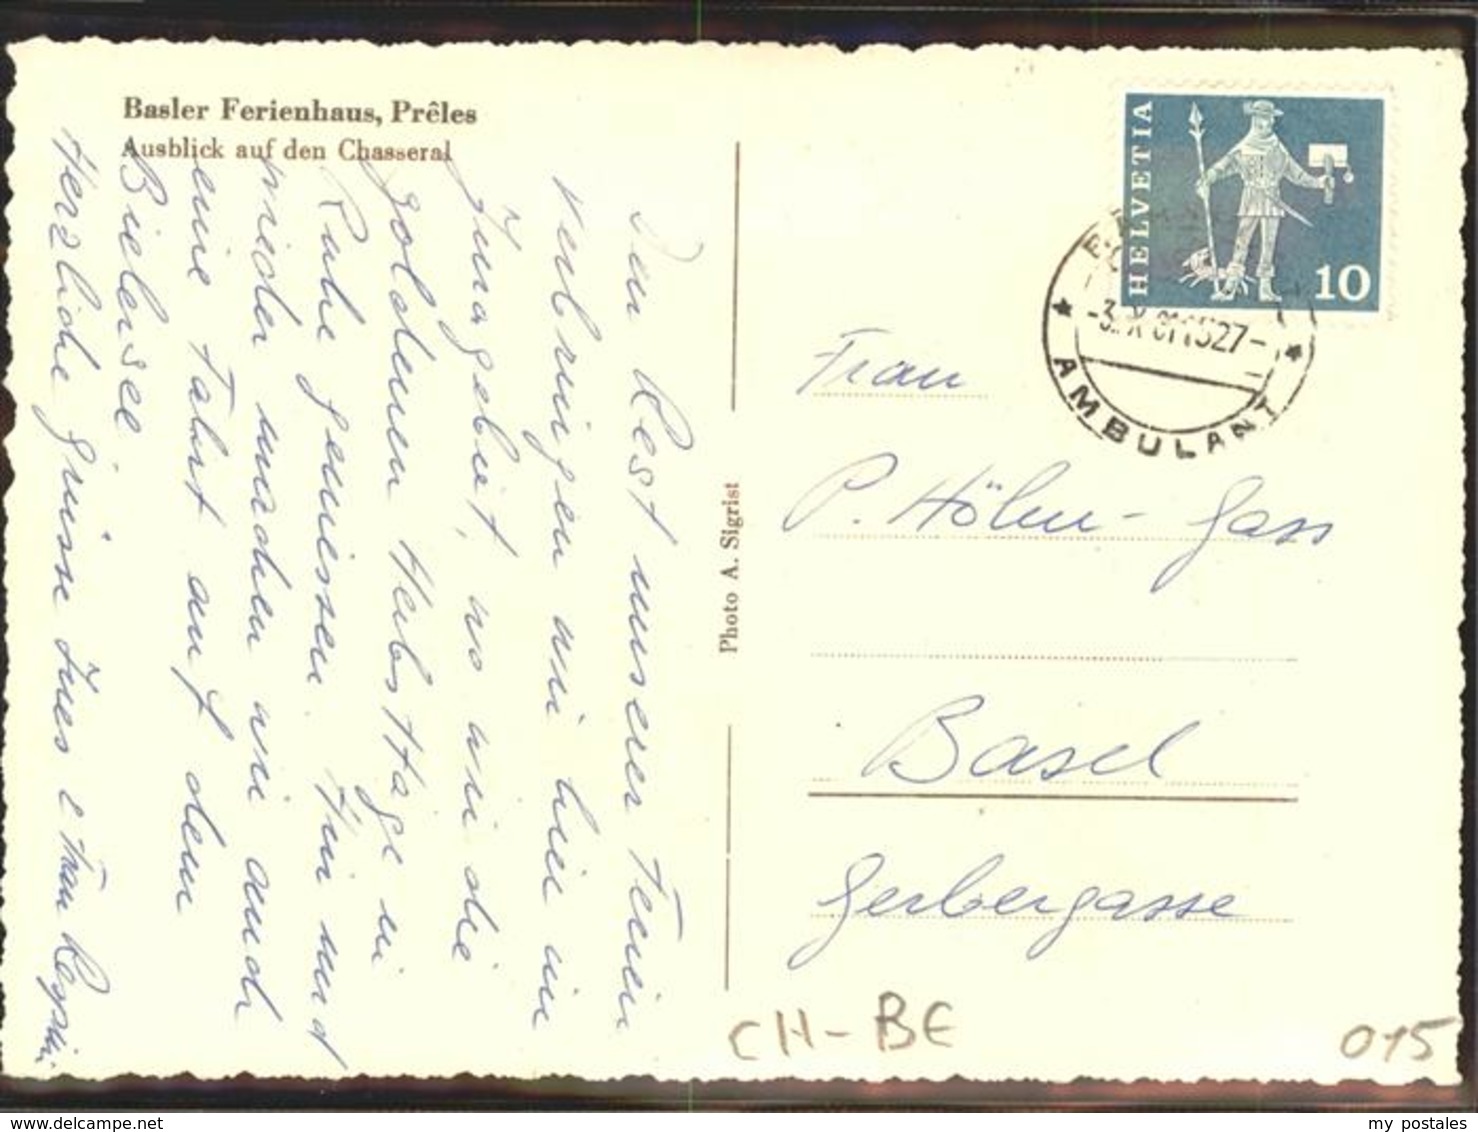 Basler Ferienhaus, Prêles
Ausblick auf den Chasseral
Den Rest unserer Ferien
verbringen wir hier im
Juragebiet, wo wir die
goldenen Herbsttage in
Ruhe geniessen. Hin und
wieder machen wir auch
eine Fahrt auf dem
Bielersee.
Herzliche Grüsse Ihres & Frau
Photo A. Sigrist
HELVETIA
10
AMBULANT
Frau
P. Höhn - Gass
Basel
Gerbergasse
CH-BE
015
my_postales